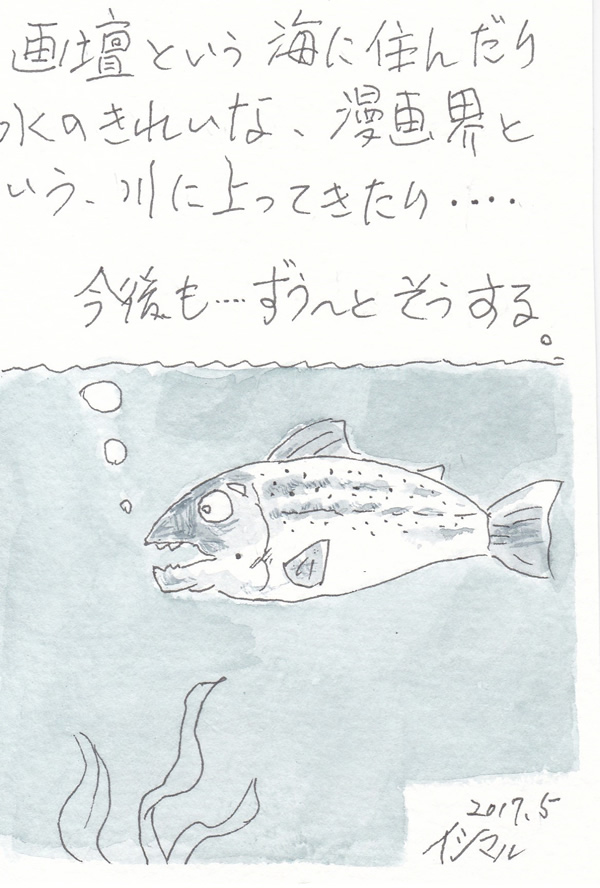 画壇という海に住んだり
水のきれいな、漫画界と
いう、川に上ってきたり‥‥
今後も‥‥ずう～とそうする。
2017.5
イシマル